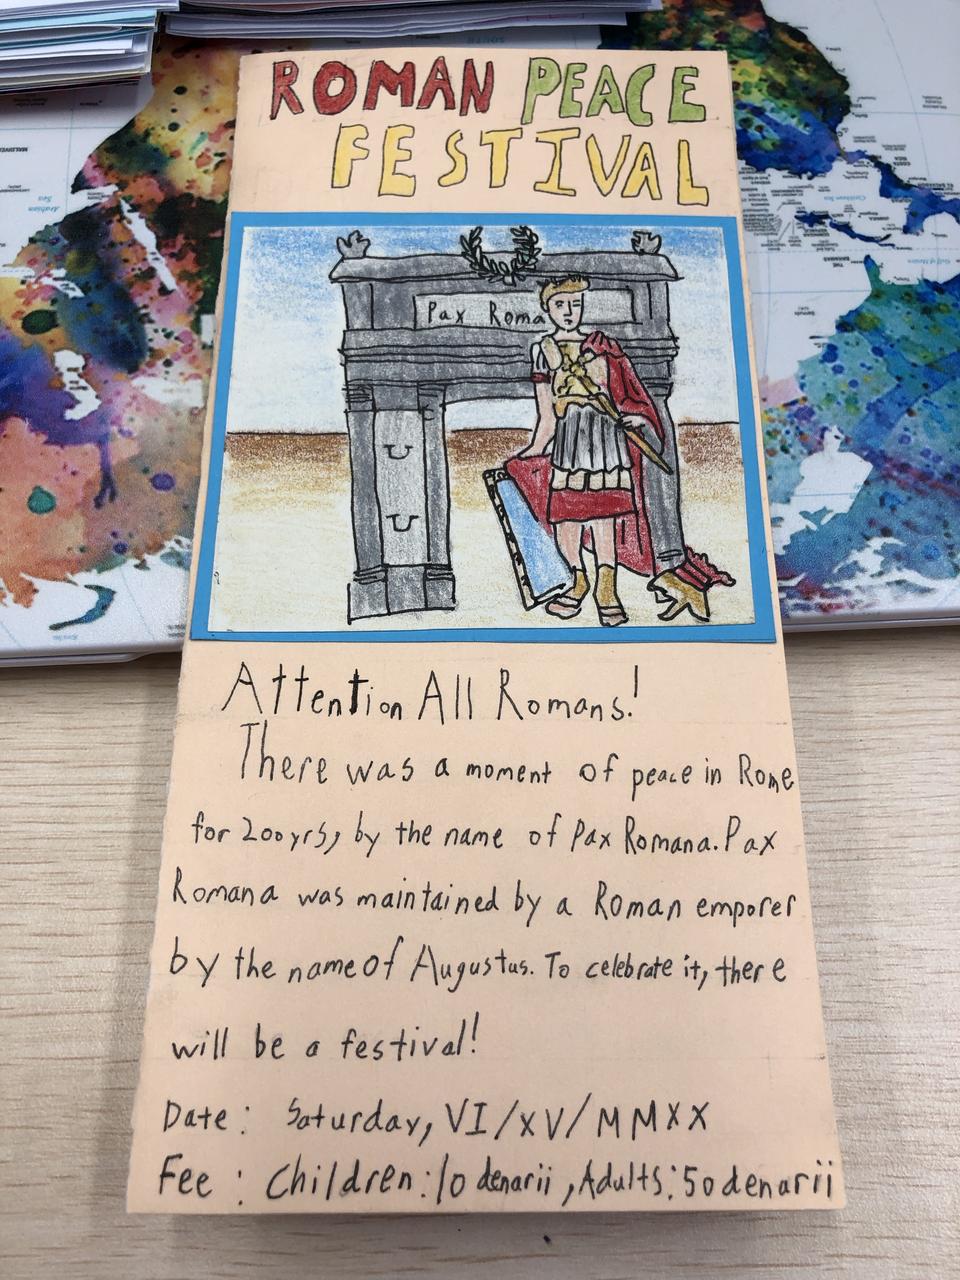 ROMAN PEACE
FESTIVAL
Pax Roma
Attention All Romans!
There was a moment of peace in Rome
for 200yrs, by the name of Pax Romana. Pax
Romana was maintained by a Roman emporer
by the name of Augustus. To celebrate it, there
will be a festival!
Date: Saturday, VI/XV/MMXX
Fee: Children: 10 denarii, Adults: 50 denarii